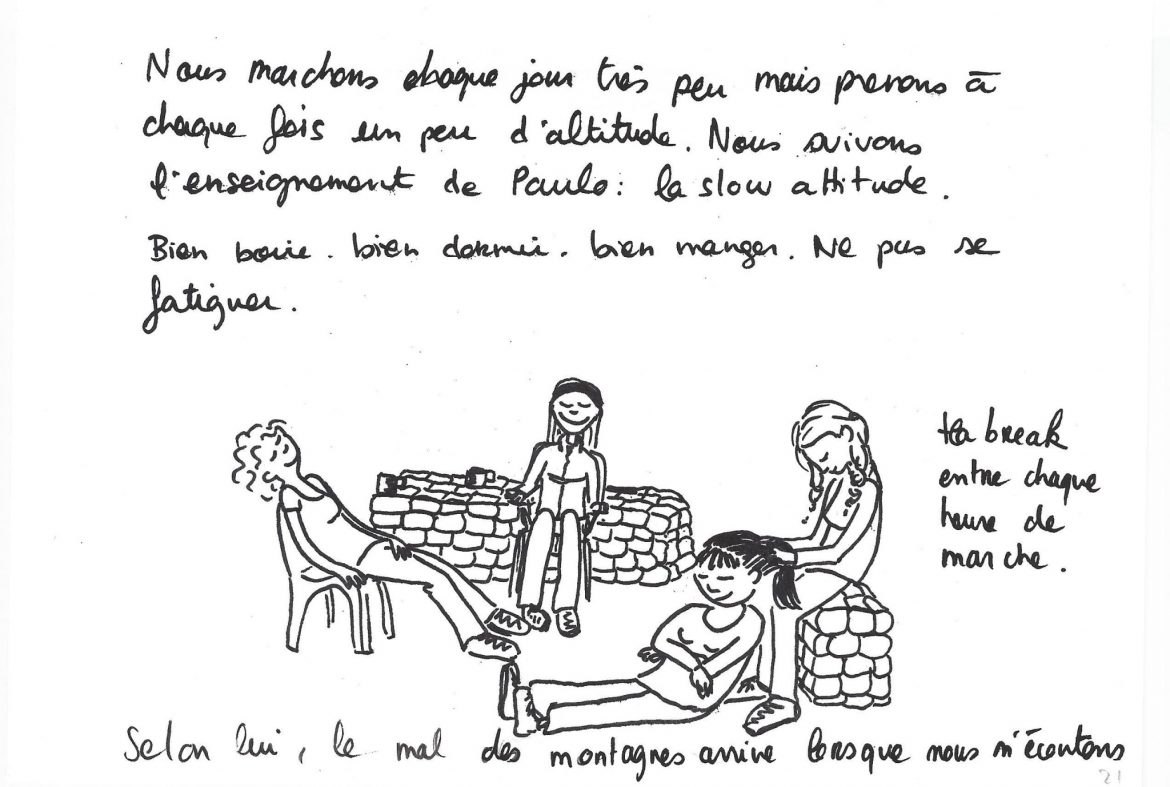 Nous marchons chaque jour très peu mais prenons à
chaque fois un peu d'altitude. Nous suivons
l'enseignement de Paulo : la slow attitude.
Bien boire . bien dormir . bien manger . Ne pas se
fatiguer .
tea break
entre chaque
heure de
marche .
Selon lui, le mal des montagnes arrive lorsque nous n'écoutons
21